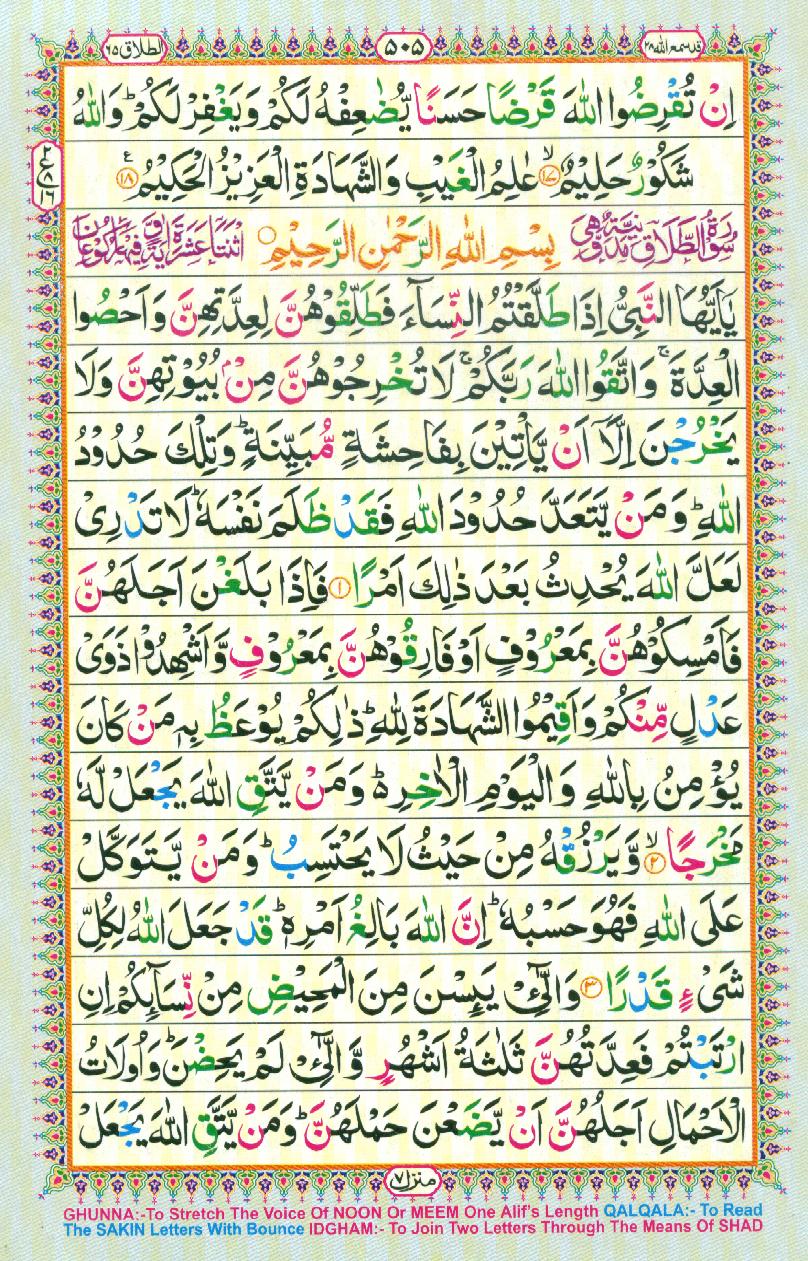 قد سمع الله ٢٨ ٥٠٥ الطلاق ٦٥
اِنۡ تُقۡرِضُوا اللّٰهَ قَرۡضًا حَسَنًا يُّضٰعِفۡهُ لَكُمۡ وَيَغۡفِرۡ لَكُمۡ ؕ وَاللّٰهُ
شَكُوۡرٌ حَلِيۡمٌ ۙ‏ ﴿۱۷﴾ عٰلِمُ الۡغَيۡبِ وَالشَّهَادَةِ الۡعَزِيۡزُ الۡحَكِيۡمُ ﴿۱۸﴾
ع ٢ ٨ ١٦
سُوۡرَةُ الطَّلَاقِ مَدَنِيَّةٌ وَّهِيَ بِسۡمِ اللّٰهِ الرَّحۡمٰنِ الرَّحِيۡمِ اثۡنَتَا عَشَرَةَ اٰيَةً وَّفِيۡهَا رُكُوۡعَانِ
يٰۤاَيُّهَا النَّبِىُّ اِذَا طَلَّقۡتُمُ النِّسَآءَ فَطَلِّقُوۡهُنَّ لِعِدَّتِهِنَّ وَاَحۡصُوا
الۡعِدَّةَ ۚ وَاتَّقُوا اللّٰهَ رَبَّكُمۡ ۚ لَا تُخۡرِجُوۡهُنَّ مِنۡۢ بُيُوۡتِهِنَّ وَلَا
يَخۡرُجۡنَ اِلَّاۤ اَنۡ يَّاۡتِيۡنَ بِفَاحِشَةٍ مُّبَيِّنَةٍ ؕ وَتِلۡكَ حُدُوۡدُ
اللّٰهِ ؕ وَمَنۡ يَّتَعَدَّ حُدُوۡدَ اللّٰهِ فَقَدۡ ظَلَمَ نَفۡسَهٗ ؕ لَا تَدۡرِىۡ
لَعَلَّ اللّٰهَ يُحۡدِثُ بَعۡدَ ذٰلِكَ اَمۡرًا ﴿۱﴾ فَاِذَا بَلَغۡنَ اَجَلَهُنَّ
فَاَمۡسِكُوۡهُنَّ بِمَعۡرُوۡفٍ اَوۡ فَارِقُوۡهُنَّ بِمَعۡرُوۡفٍ وَّاَشۡهِدُوۡا ذَوَىۡ
عَدۡلٍ مِّنۡكُمۡ وَاَقِيۡمُوا الشَّهَادَةَ لِلّٰهِ ؕ ذٰلِكُمۡ يُوۡعَظُ بِهٖ مَنۡ كَانَ
يُؤۡمِنُ بِاللّٰهِ وَالۡيَوۡمِ الۡاٰخِرِ ۬ؕ وَمَنۡ يَّتَّقِ اللّٰهَ يَجۡعَلۡ لَّهٗ
مَخۡرَجًا ۙ‏ ﴿۲﴾ وَّيَرۡزُقۡهُ مِنۡ حَيۡثُ لَا يَحۡتَسِبُ ؕ وَمَنۡ يَّتَوَكَّلۡ
عَلَى اللّٰهِ فَهُوَ حَسۡبُهٗ ؕ اِنَّ اللّٰهَ بَالِغُ اَمۡرِهٖ ؕ قَدۡ جَعَلَ اللّٰهُ لِكُلِّ
شَىۡءٍ قَدۡرًا ﴿۳﴾ وَالّٰٓـىِٔۡ يَئِسۡنَ مِنَ الۡمَحِيۡضِ مِنۡ نِّسَآئِكُمۡ اِنِ
ارۡتَبۡتُمۡ فَعِدَّتُهُنَّ ثَلٰثَةُ اَشۡهُرٍ وَّالّٰٓـىِٔۡ لَمۡ يَحِضۡنَ ؕ وَاُولَاتُ
الۡاَحۡمَالِ اَجَلُهُنَّ اَنۡ يَّضَعۡنَ حَمۡلَهُنَّ ؕ وَمَنۡ يَّتَّقِ اللّٰهَ يَجۡعَلْ
منزل ٧
GHUNNA:-To Stretch The Voice Of NOON Or MEEM One Alif's Length QALQALA:- To Read
The SAKIN Letters With Bounce IDGHAM:- To Join Two Letters Through The Means Of SHAD